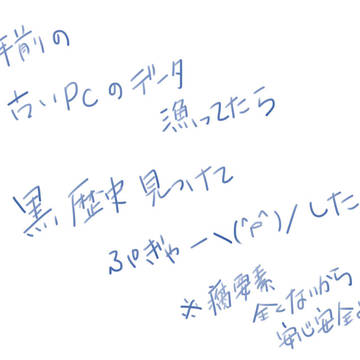 年前の
古いPCのデータ
漁ってたら
黒歴史見つけて
ぷぎゃー\(^p^)/した
※腐要素
全くないから
安心安全